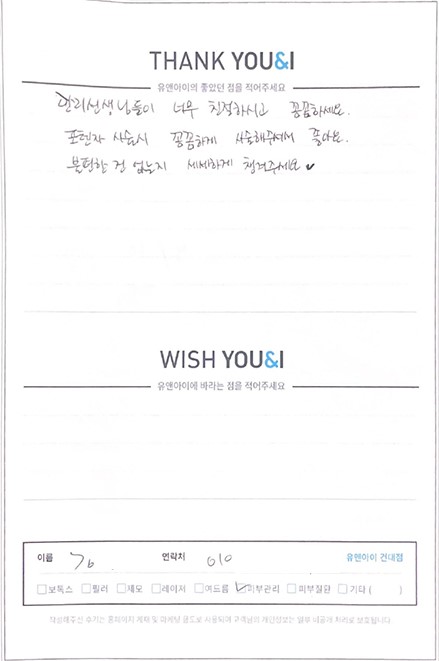 THANK YOU&I
유앤아이의 좋았던 점을 적어주세요
관리선생님들이 너무 친절하시고 꼼꼼하세요.
포텐자 시술시 꼼꼼하게 시술해주셔서 좋아요.
불편한 건 없는지 세세하게 챙겨주세요
WISH YOU&I
유앤아이에 바라는 점을 적어주세요
이름 연락처 010 유앤아이 건대점
보톡스 필러 제모 레이저 여드름 피부관리 피부질환 기타 ( )
작성해주신 후기는 홈페이지 게재 및 마케팅 용도로 사용되며 고객님의 개인정보는 일부 비공개 처리로 보호됩니다